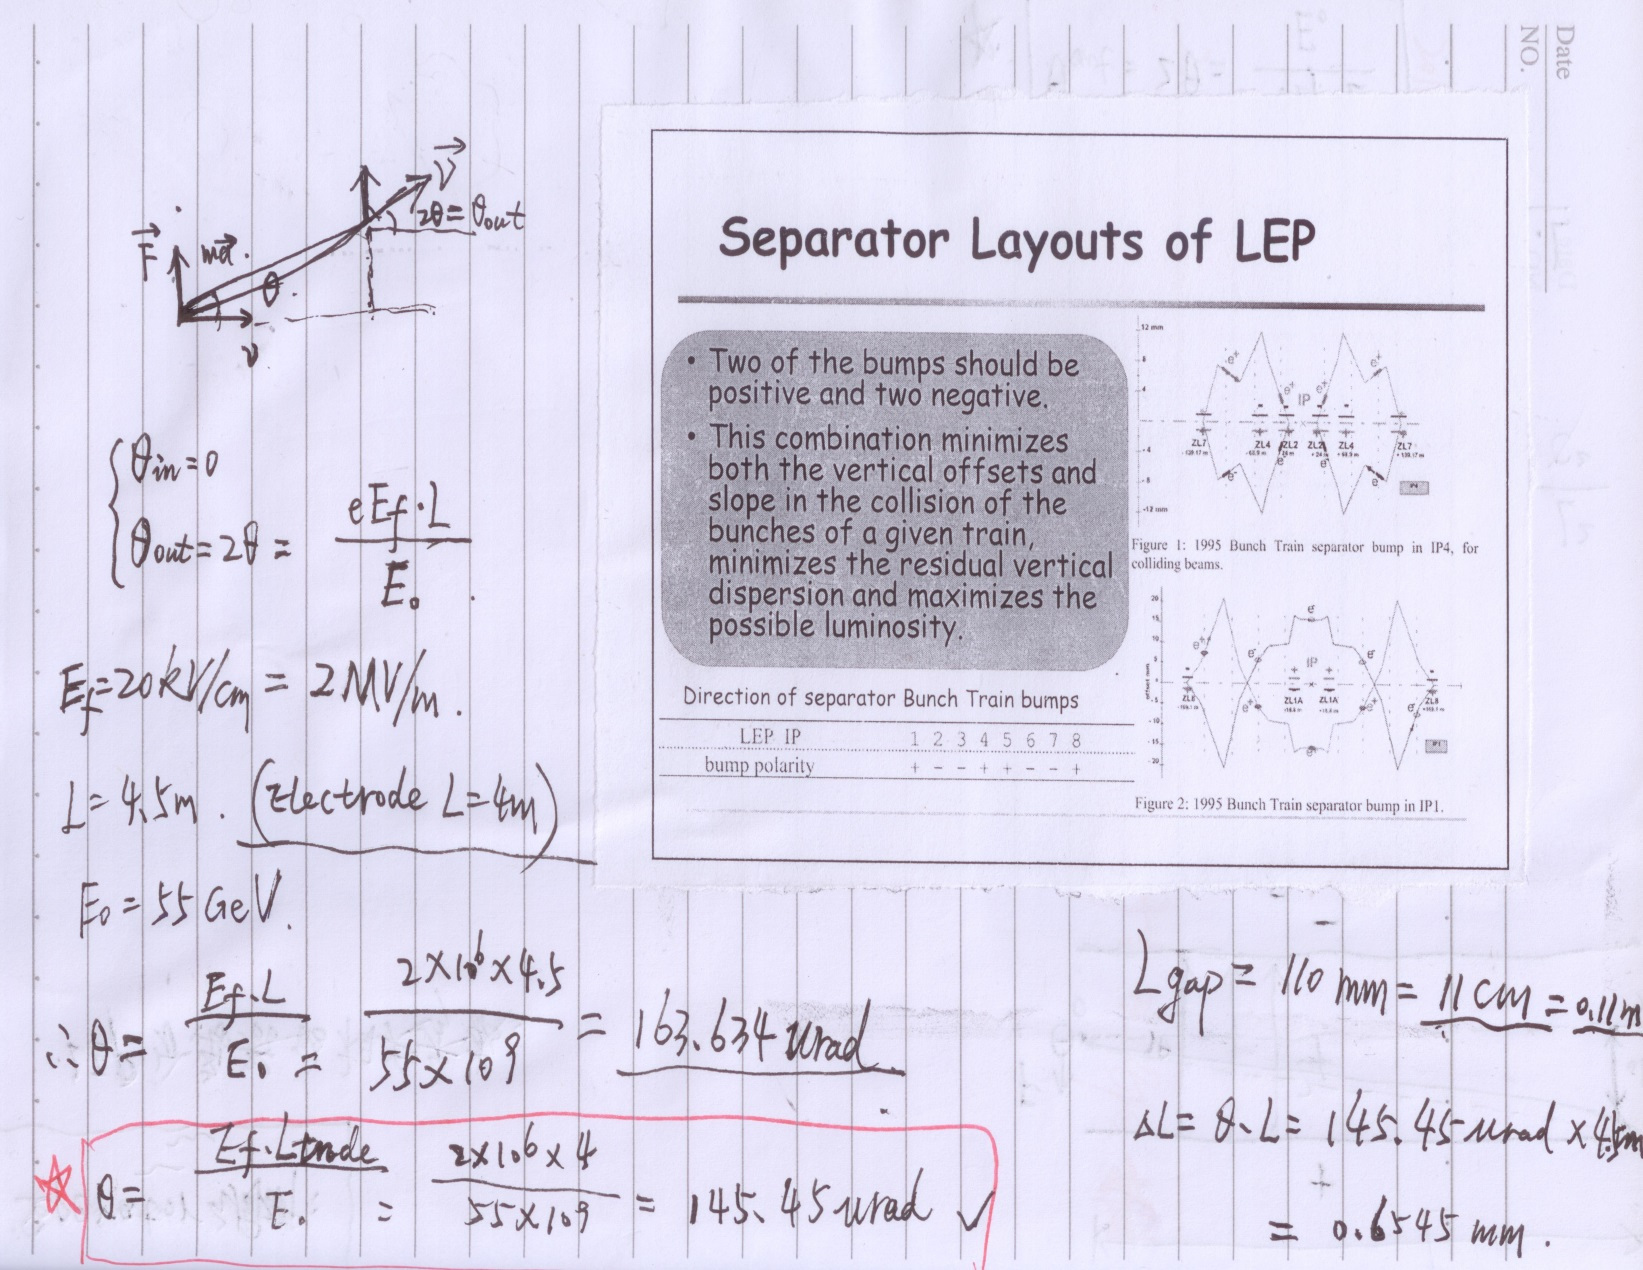 Date
NO.
V
2θ = θout
F
ma
θ
v
θin = 0
θout = 2θ = eEf·L / E₀
Ef = 20kV/cm = 2MV/m.
L = 4.5m. (Electrode L=4m)
E₀ = 55 GeV.
∴ θ = Ef·L / E₀ = 2×10⁶×4.5 / 55×10⁹ = 163.634 urad
θ = Ef·Ltrode / E₀ = 2×10⁶×4 / 55×10⁹ = 145.45 urad ✓
Separator Layouts of LEP
• Two of the bumps should be
positive and two negative.
• This combination minimizes
both the vertical offsets and
slope in the collision of the
bunches of a given train,
minimizes the residual vertical
dispersion and maximizes the
possible luminosity.
Direction of separator Bunch Train bumps
LEP IP 1 2 3 4 5 6 7 8
bump polarity + - - + + - - +
12 mm
8
4
-4
-8
-12 mm
e⁺ e⁺ e⁺ e⁺
IP
ZL7 ZL4 ZL2 ZL2 ZL4 ZL7
e⁻ e⁻ e⁻ e⁻
IP4
Figure 1: 1995 Bunch Train separator bump in IP4, for
colliding beams.
20
15
10
5
0
-5
-10
-15
-20
offset mm
e⁻
e⁺ e⁻ e⁻
IP
ZL8 ZL1A ZL1A ZL8
e⁺ e⁺
e⁺
IP1
Figure 2: 1995 Bunch Train separator bump in IP1.
Lgap = 110 mm = 11 cm = 0.11m
ΔL = θ·L = 145.45 urad × 4.5m
= 0.6545 mm.